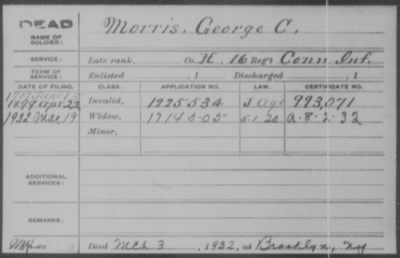 DEAD Morris, George C.
NAME OF SOLDIER:
SERVICE: Late rank, Co. H, 16 Reg't Conn Inf.
TERM OF SERVICE: Enlisted , 1 Discharged , 1
DATE OF FILING. CLASS. APPLICATION NO. LAW. CERTIFICATE NO.
1899 Apr 22 Invalid, 1225534 J Age 993,071
1932 Mar 19 Widow, 1714505 5-1-20 a-8-2-32
Minor,
ADDITIONAL SERVICES:
REMARKS:
Died Mch 3, 1932, at Brooklyn, NY